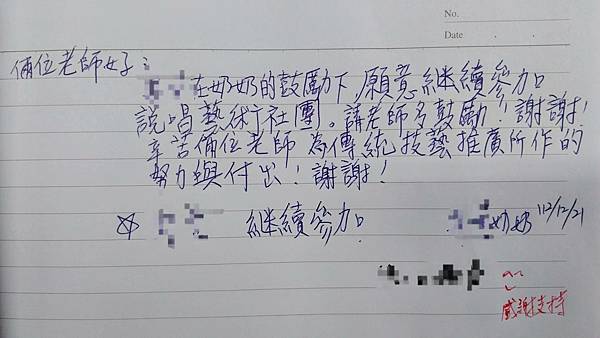 No.
Date . .
倆位老師好：
在奶奶的鼓勵下,願意繼續參加
說唱藝術社團。請老師多鼓勵！謝謝！
辛苦倆位老師為傳統技藝推廣所作的
努力與付出！謝謝！
☆ 繼續參加 奶奶 112/12/21
感謝支持